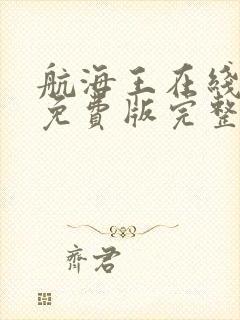 航海王在线
免費版完整
齊君